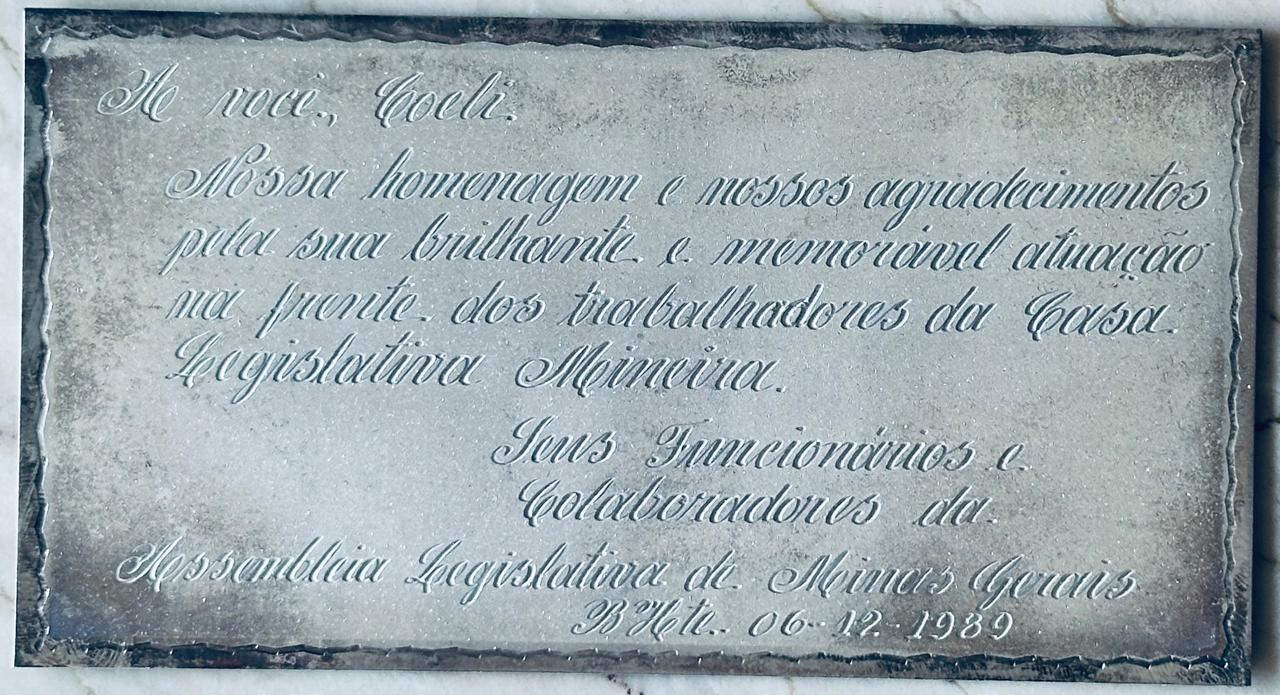 A você, Coeli.
Nossa homenagem e nossos agradecimentos
pela sua brilhante e memorável atuação
na frente dos trabalhadores da Casa
Legislativa Mineira.
Seus Funcionários e
Colaboradores da
Assembleia Legislativa de Minas Gerais
B Hte. 06-12-1989